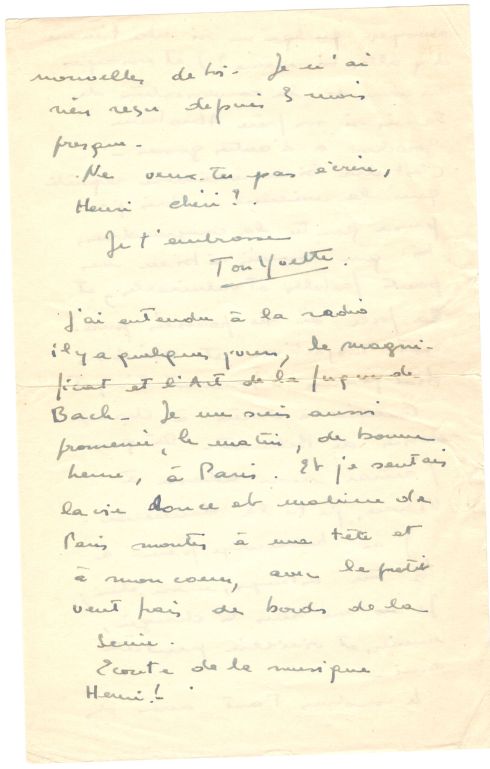 nouvelles de toi. Je n'ai
rien reçu depuis 3 mois
presque.
Ne veux-tu pas écrire,
Henri chéri?.
Je t'embrasse
Ton Yvette.
J'ai entendu à la radio
il y a quelques jours, le magni-
ficat et l'Art de la fugue de
Bach. Je me suis aussi
promenée, le matin, de bonne
heure, à Paris. Et je sentais
la vie douce et matinale de
Paris monter à ma tête et
à mon coeur, avec le petit
vent frais des bords de la
Seine.
Ecoute de la musique
Henri!